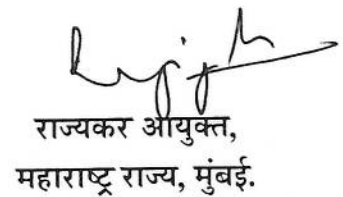 राज्यकर आयुक्त,
महाराष्ट्र राज्य, मुंबई.